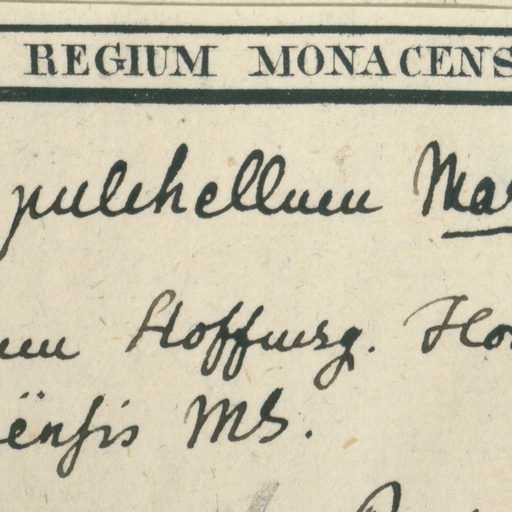 REGIUM MONACENS
pulchellum Mar
um Hoffmsg. Ho
ënsis MS.